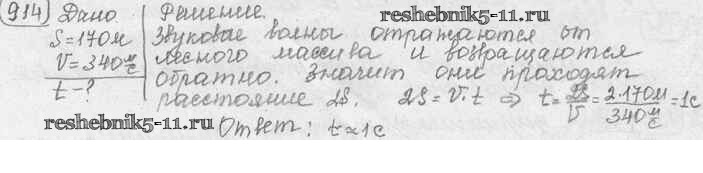 914) Дано Решение.
reshebnik5-11.ru
S=170м Звуковые волны отражаются от
V=340м/с лесного массива и возвращаются
t-? обратно. Значит они проходят
расстояние 2S. 2S=V·t ⇒ t=2S/V=2·170м/340м/с=1с
reshebnik5-11.ru Ответ: t≈1с